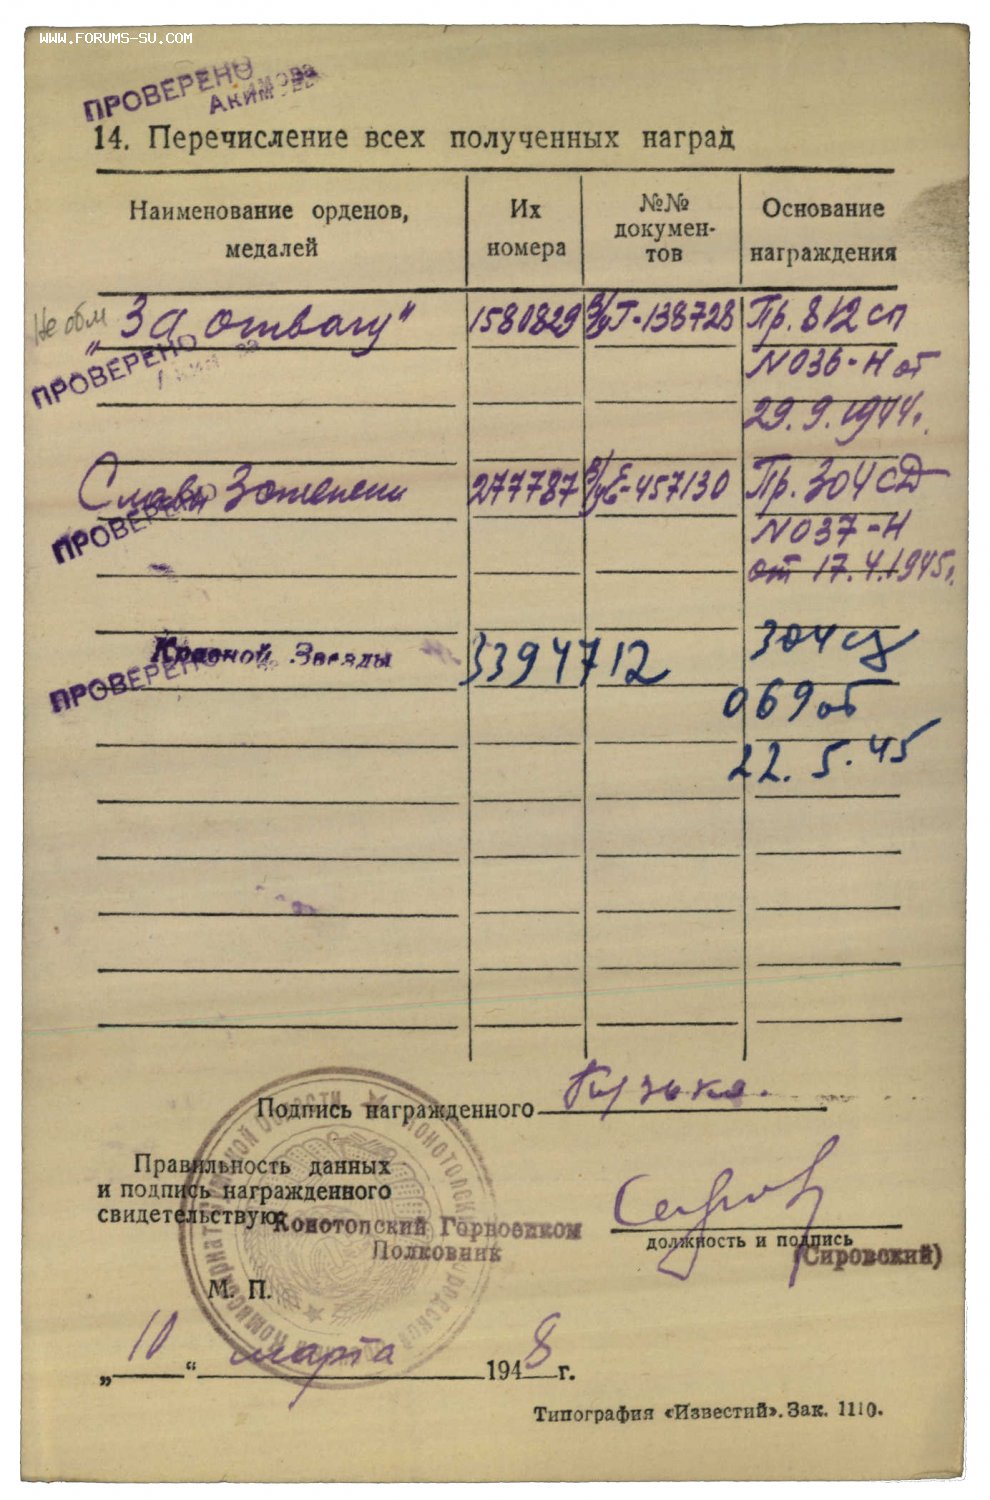 WWW.FORUMS-SU.COM
ПРОВЕРЕНО
Акимова
14. Перечисление всех полученных наград
Наименование орденов, медалей
Их номера
№№ докумен-тов
Основание награждения
Не обм
„За отвагу“ 1580829 в/уГ-138728 Пр. 812 сп
ПРОВЕРЕНО
N 036-Н от
29.9.1944г.
Слава 3 степени 277787 в/уЕ-457130 Пр. 304 СД
ПРОВЕРЕНО
N 037-Н
от 17.4.1945г.
Красной Звезды 3394712 304 сд
ПРОВЕРЕНО
069 от
22.5.45
Подпись награжденного
Правильность данных
и подпись награжденного
свидетельствую
Конотопский Горвоенком
Полковник
должность и подпись
(Сировский)
М. П.
„10“ марта 1948 г.
Типография «Известий». Зак. 1110.